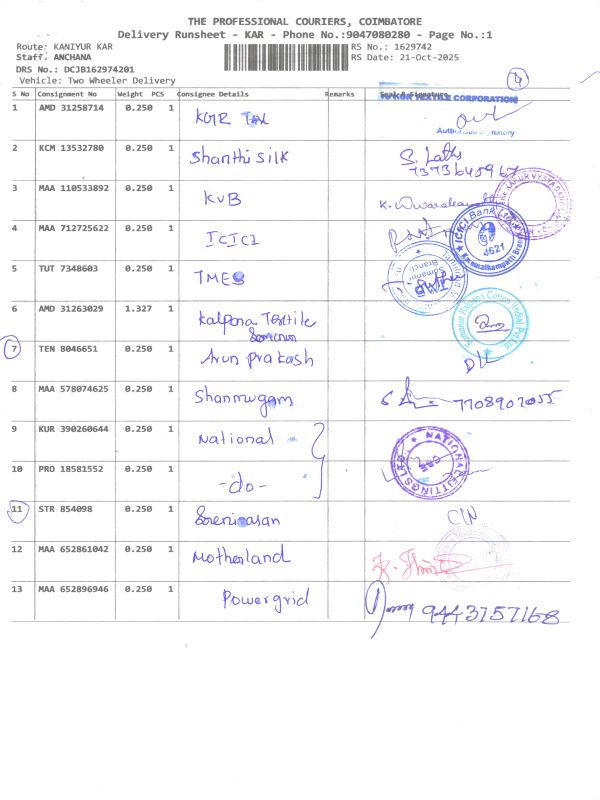 THE PROFESSIONAL COURIERS, COIMBATORE
Delivery Runsheet - KAR - Phone No.:9047080280 - Page No.:1
Route: KANIYUR KAR RS No.: 1629742
Staff. ANCHANA RS Date: 21-Oct-2025
DRS No.: DCJB162974201
Vehicle: Two Wheeler Delivery
4
S No Consignment No Weight PCS Consignee Details Remarks Seal & Signature
TEXTILE CORPORATION
1 AMD 31258714 0.250 1 KGR
2 KCM 13532780 0.250 1 Shanthi Silk S. Latha
3 MAA 110533892 0.250 1 KVB
4 MAA 712725622 0.250 1 ICICI
ICICI Bank
4621
5 TUT 7348603 0.250 1 TMES
Somanur Branch
6 AMD 31263029 1.327 1 Kalpana Textile
Somanur
Somanur Kalpana Cotton (India) Pvt Ltd
7 TEN 8046651 0.250 1 Arun prakash D/L
8 MAA 578074625 0.250 1 Shanmugam 7708902055
9 KUR 390260644 0.250 1 National
NATIONAL FITTINGS LTD
10 PRO 18581552 0.250 1 -do-
11 STR 854098 0.250 1 Sreenivasan C/N
12 MAA 652861042 0.250 1 Motherland
13 MAA 652896946 0.250 1 Powergrid 9443757168